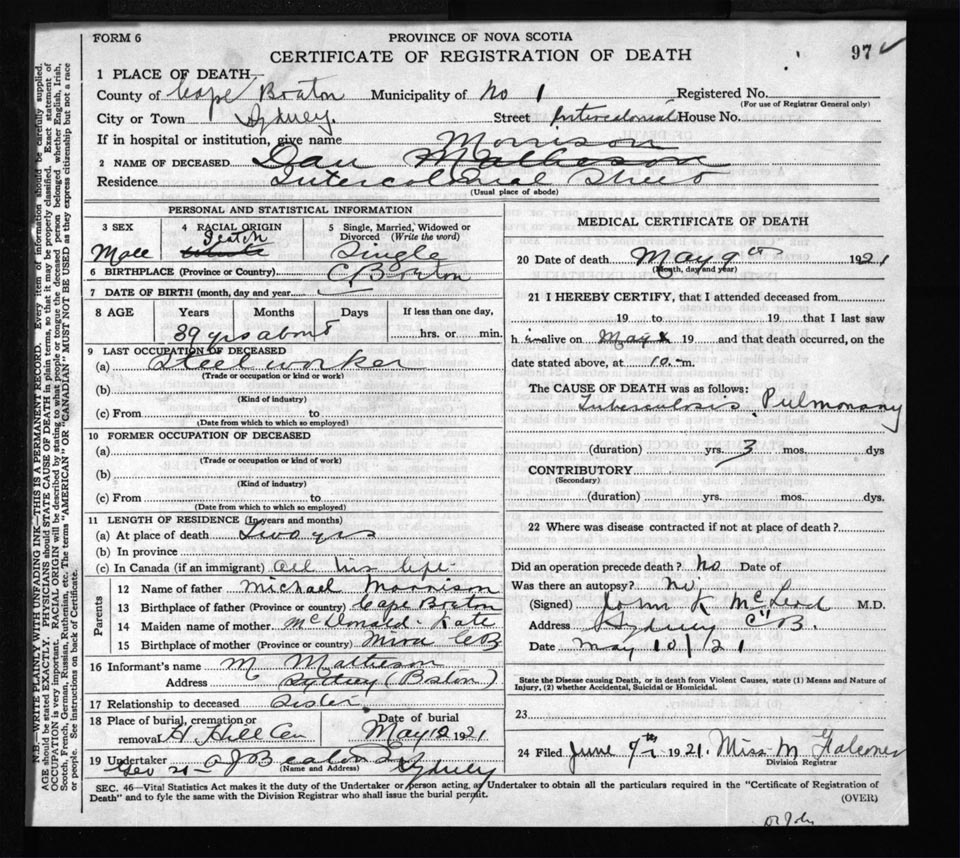 FORM 6
PROVINCE OF NOVA SCOTIA
CERTIFICATE OF REGISTRATION OF DEATH
97 ✓
1 PLACE OF DEATH—
County of Cape Braton Municipality of No 1 Registered No.
(For use of Registrar General only)
City or Town Sydney. Street Intercolonial House No.
If in hospital or institution, give name
Morrison
2 NAME OF DECEASED Dan Matheson
Residence Intercolonial Street
(Usual place of abode)
PERSONAL AND STATISTICAL INFORMATION
3 SEX 4 RACIAL ORIGIN 5 Single, Married, Widowed or Divorced (Write the word)
Male Scotch Single
6 BIRTHPLACE (Province or Country) C. Braton
7 DATE OF BIRTH (month, day and year)
8 AGE Years Months Days If less than one day,
39 yrs about hrs. or min.
9 LAST OCCUPATION OF DECEASED
(a) Steel worker
(Trade or occupation or kind or work)
(b)
(Kind of industry)
(c) From to
(Date from which to which so employed)
10 FORMER OCCUPATION OF DECEASED
(a)
(Trade or occupation or kind of work)
(b)
(Kind of industry)
(c) From to
(Date from which to which so employed)
11 LENGTH OF RESIDENCE (In years and months)
(a) At place of death Two yrs
(b) In province
(c) In Canada (if an immigrant) all his life
Parents
12 Name of father Michael Morrison
13 Birthplace of father (Province or country) Cape Braton
14 Maiden name of mother McDonald - Kate
15 Birthplace of mother (Province or country) Mira CB
16 Informant's name M Matheson
Address Sydney (Boston)
17 Relationship to deceased Sister
18 Place of burial, cremation or removal H Hill Cem Date of burial May 12 1921
19 Undertaker A J Beaton Sydney
(Name and Address)
MEDICAL CERTIFICATE OF DEATH
20 Date of death May 9th 1921
(Month, day and year)
21 I HEREBY CERTIFY, that I attended deceased from
19 to 19 that I last saw
h im alive on May 19 and that death occurred, on the
date stated above, at 10 m
The CAUSE OF DEATH was as follows:
Tuberculosis, Pulmonary
(duration) yrs. 3 mos. dys
CONTRIBUTORY
(Secondary)
(duration) yrs. mos. dys.
22 Where was disease contracted if not at place of death?
Did an operation precede death? No Date of
Was there an autopsy? No
(Signed) John K McLeod M.D.
Address Sydney C.B.
Date May 10/21
State the Disease causing Death, or in death from Violent Causes, state (1) Means and Nature of
Injury, (2) whether Accidental, Suicidal or Homicidal.
23
24 Filed June 9th 1921. Miss M Falconer
Division Registrar
SEC. 46—Vital Statistics Act makes it the duty of the Undertaker or person acting, as Undertaker to obtain all the particulars required in the "Certificate of Registration of
Death" and to fyle the same with the Division Registrar who shall issue the burial permit.
(OVER)
N.B.—WRITE PLAINLY WITH UNFADING INK—THIS IS A PERMANENT RECORD. Every item of information should be carefully supplied.
AGE should be stated EXACTLY. PHYSICIANS should STATE CAUSE OF DEATH in plain terms, so that it may be properly classified. Exact statement of
OCCUPATION is very important. RACIAL ORIGIN will be described by stating to what people or tongue the deceased person belonged whether English, Irish,
Scotch, French, German, Russian, Ruthenian, etc. The terms "AMERICAN" OR "CANADIAN" MUST NOT BE USED as they express citizenship but not a race
or people. See instructions on back of Certificate.